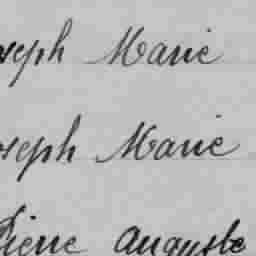 oseph Marie
oseph Marie
Pierre Auguste